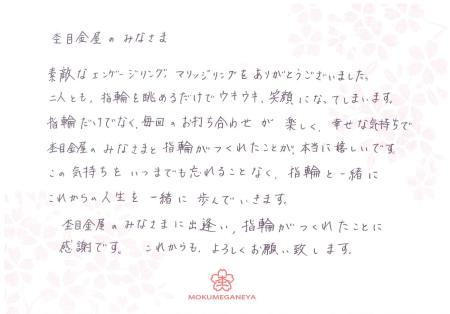 杢目金屋のみなさま
素敵なエンゲージリング、マリッジリングをありがとうございました。
二人とも、指輪を眺めるだけでウキウキ、笑顔になってしまいます。
指輪だけでなく、毎回のお打ち合わせが楽しく、幸せな気持ちで
杢目金屋のみなさまと指輪がつくれたことが、本当に嬉しいです。
この気持ちをいつまでも忘れることなく、指輪と一緒に
これからの人生を一緒に歩んでいきます。
杢目金屋のみなさまに出逢い、指輪がつくれたことに
感謝です。これからも、よろしくお願い致します。
MOKUMEGANEYA